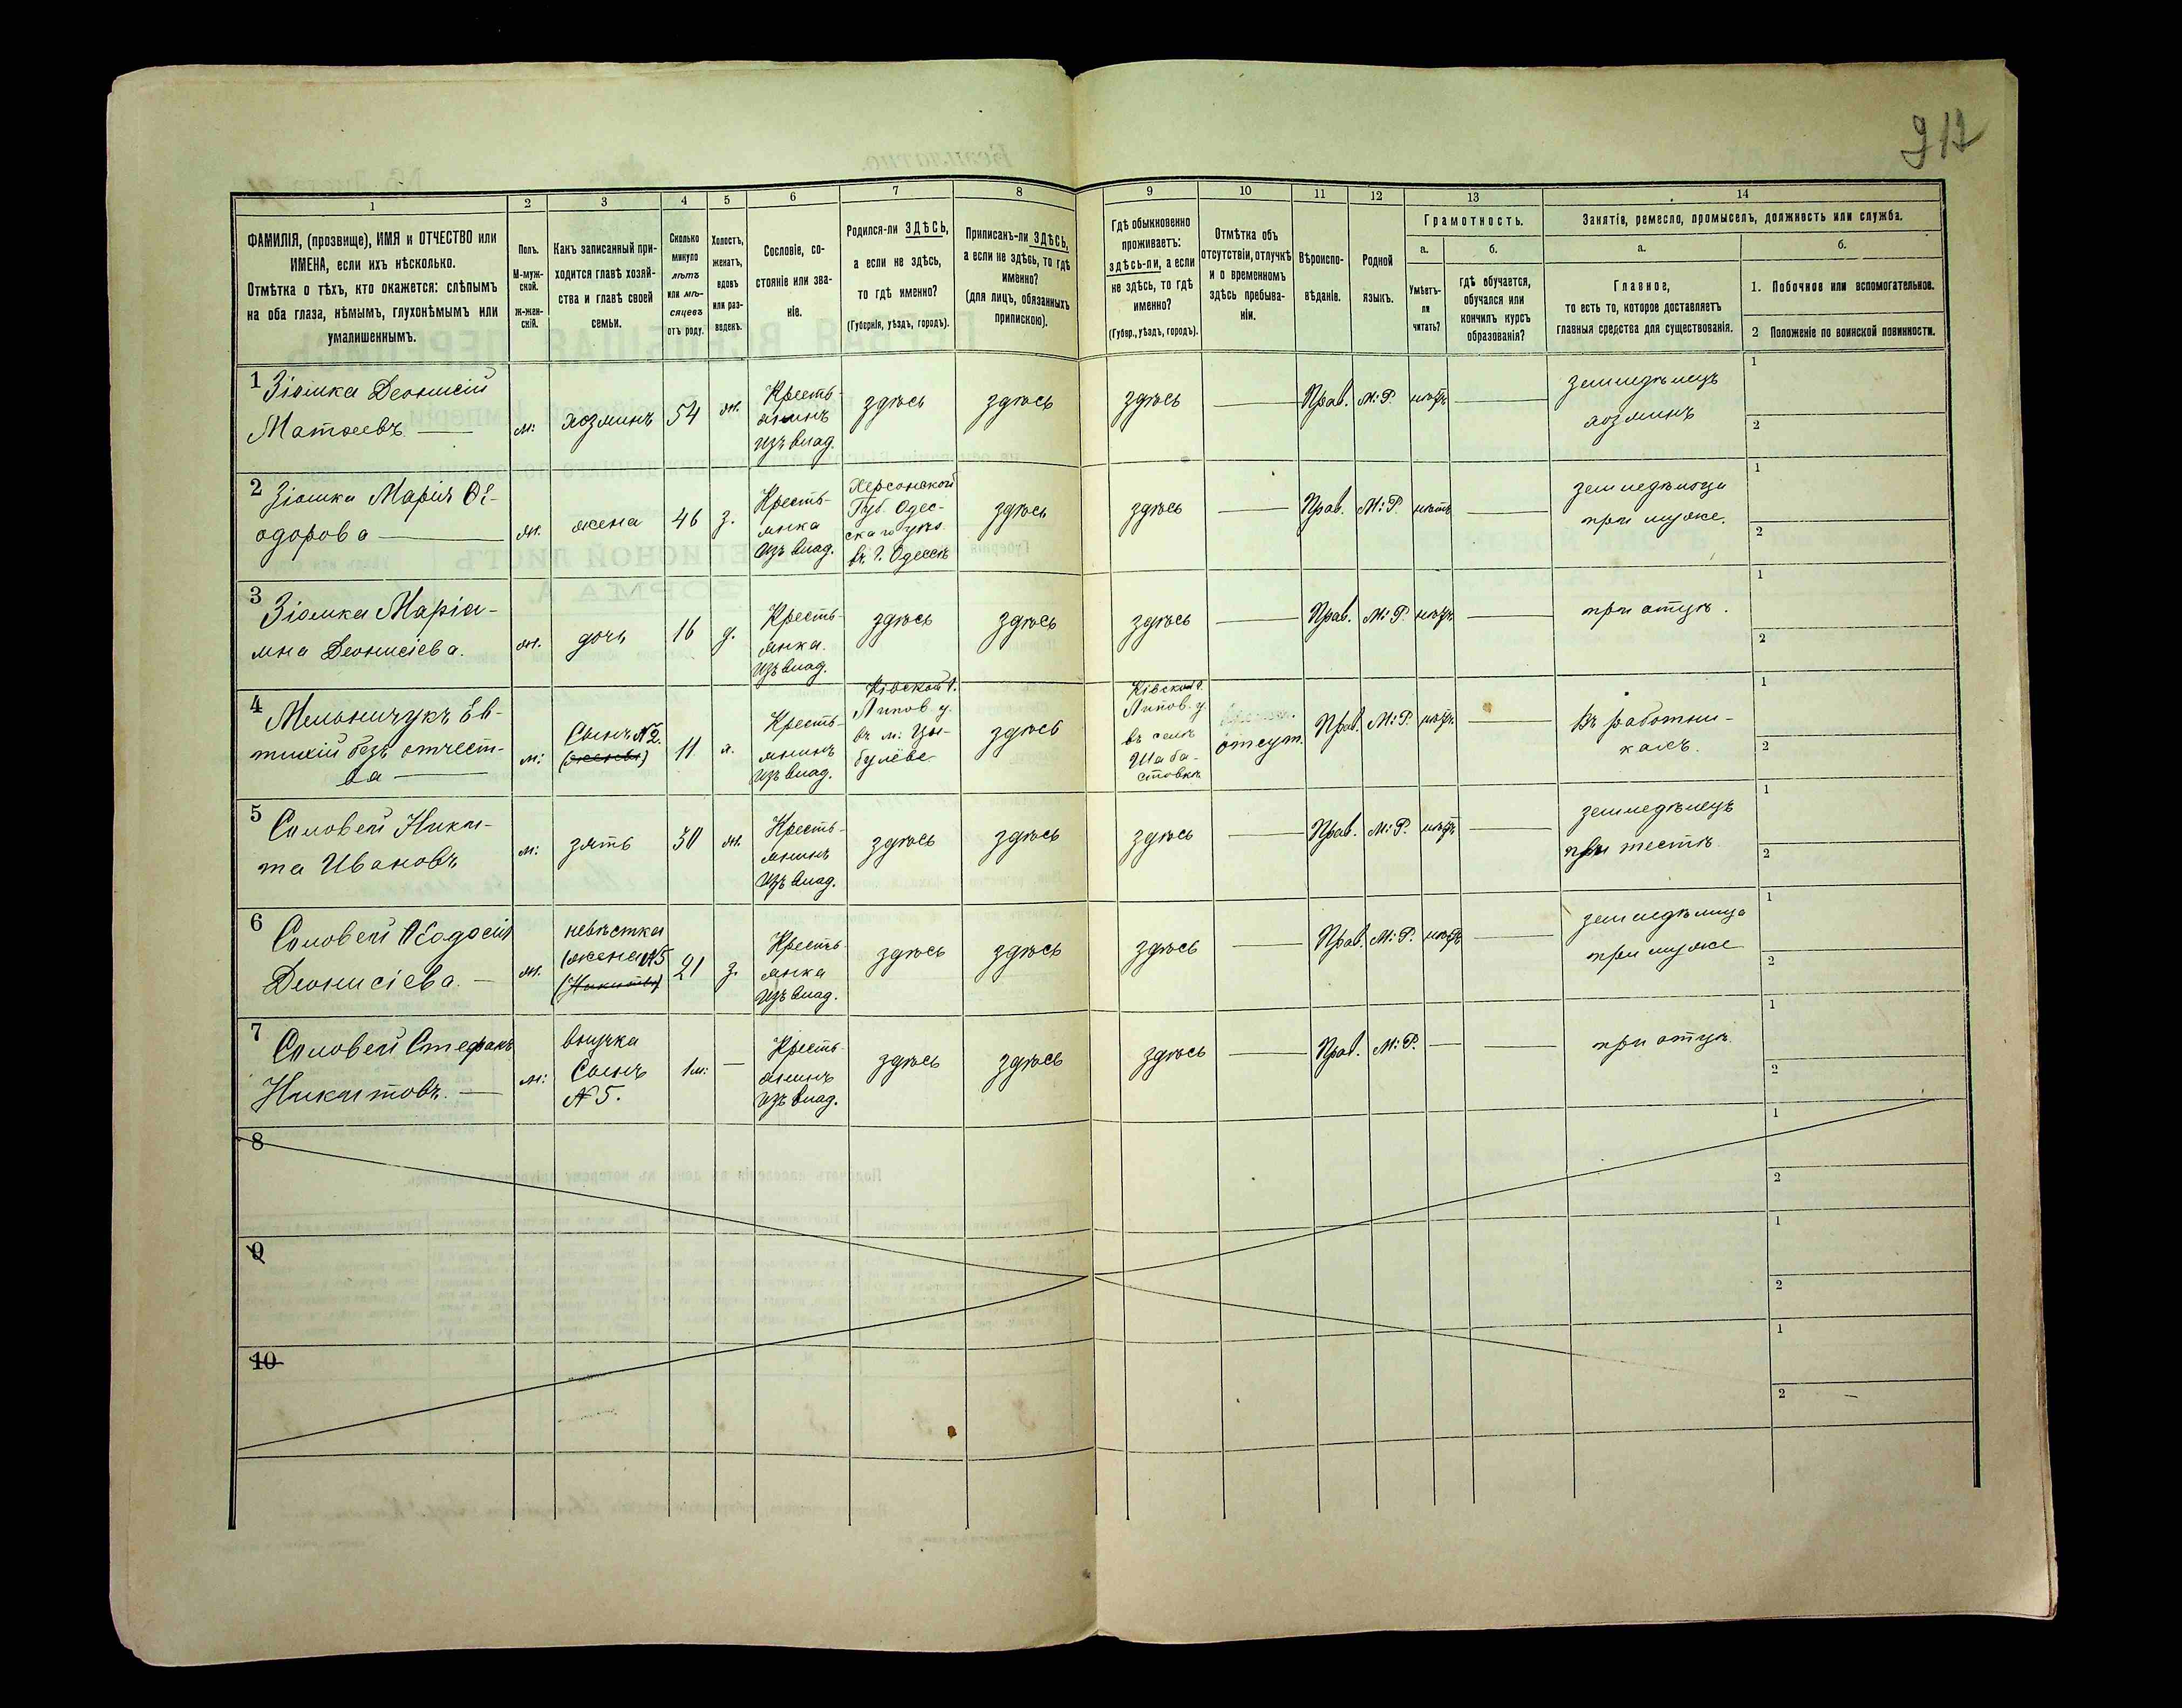 212
1 2 3 4 5 6 7 8 9 10 11 12 13 14
ФАМИЛІЯ, (прозвище), ИМЯ и ОТЧЕСТВО или
ИМЕНА, если ихъ нѣсколько.
Отмѣтка о тѣхъ, кто окажется: слѣпымъ
на оба глаза, нѣмымъ, глухонѣмымъ или
умалишеннымъ.
Полъ.
М-муж-
ской.
Ж-жен-
скій.
Какъ записанный при-
ходится главѣ хозяй-
ства и главѣ своей
семьи.
Сколько
минуло
лѣтъ
или мѣ-
сяцевъ
отъ роду.
Холостъ,
женатъ,
вдовъ
или раз-
веденъ.
Сословіе, со-
стояніе или зва-
ніе.
Родился-ли ЗДѢСЬ,
а если не здѣсь,
то гдѣ именно?
(Губернія, уѣздъ, городъ).
Приписанъ-ли ЗДѢСЬ,
а если не здѣсь, то гдѣ
именно?
(для лицъ, обязанныхъ
припискою).
Гдѣ обыкновенно
проживаетъ:
здѣсь-ли, а если
не здѣсь, то гдѣ
именно?
(Губер., уѣздъ, городъ).
Отмѣтка объ
отсутствіи, отлучкѣ
и о временномъ
здѣсь пребыва-
ніи.
Вѣроиспо-
вѣданіе.
Родной
языкъ.
Грамотность.
а.
Умѣетъ-
ли
читать?
б.
гдѣ обучается,
обучался или
кончилъ курсъ
образованія?
Занятіе, ремесло, промыселъ, должность или служба.
а.
Главное,
то есть то, которое доставляетъ
главныя средства для существованія.
б.
1. Побочное или вспомогательное.
2 Положеніе по воинской повинности.
1 Зіомка Деонисій
Матѳеевъ
м:
хозяинъ
54
ж.
Кресть-
янинъ
изъ влад.
здѣсь
здѣсь
здѣсь
Прав.
М: Р.
нѣтъ
земледѣлецъ
хозяинъ
1
2
2 Зіомка Марія Ѳе-
одорова
ж.
жена
46
з.
Кресть-
янка
изъ влад.
Херсонской
Губ. Одес-
скаго уѣз.
въ г. Одессѣ
здѣсь
здѣсь
Прав.
М: Р.
нѣтъ
земледѣлица
при мужѣ.
1
2
3 Зіомка Маріа-
мна Деонисіева.
ж.
дочь
16
д.
Кресть-
янка.
изъ влад.
здѣсь
здѣсь
здѣсь
Прав.
М: Р.
нѣтъ
при отцѣ.
1
2
4 Мельничукъ Ев-
тихій безъ отчест-
ва
м:
Сынъ №2.
(жены)
11
х.
Кресть-
янинъ
изъ влад.
Кіевской г.
Липов. у.
въ м. Цы-
булёве
здѣсь
Кіевской г.
Липов. у.
въ селѣ
Шаба-
стовкѣ
отсут.
Прав.
М: Р.
нѣтъ
Въ работни-
кахъ.
1
2
5 Соловей Ники-
та Ивановъ
м:
зять
30
ж.
Кресть-
янинъ
изъ влад.
здѣсь
здѣсь
здѣсь
Прав.
М: Р.
нѣтъ
земледѣлецъ
при тестѣ.
1
2
6 Соловей Ѳеодосія
Деонисіева.
ж.
невѣстка
жена №5
(Никиты)
21
з.
Кресть-
янка
изъ влад.
здѣсь
здѣсь
здѣсь
Прав.
М: Р.
нѣтъ
земледѣлица
при мужѣ
1
2
7 Соловей Стефанъ
Никитовъ.
м:
внучка
Сынъ
№ 5.
1м:
Кресть-
янинъ
изъ влад.
здѣсь
здѣсь
здѣсь
Прав.
М: Р.
при отцѣ.
1
2
8
1
2
9
1
2
10
1
2